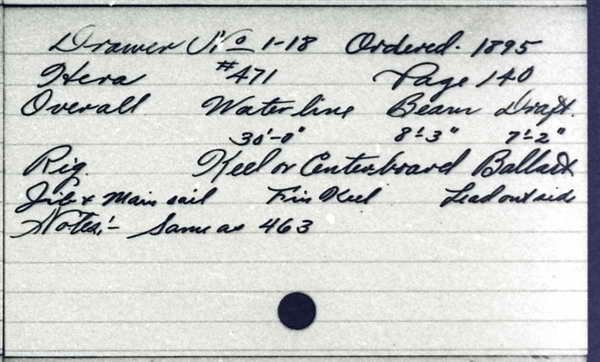 Drawer No 1-18 Ordered. 1895
Hera #471 Page 140
Overall Waterline Beam Draft.
30'-0" 8'-3" 7'-2"
Rig. Keel or Centerboard Ballast
Jib & Main sail Fin Keel Lead outside
Notes:- Same as 463